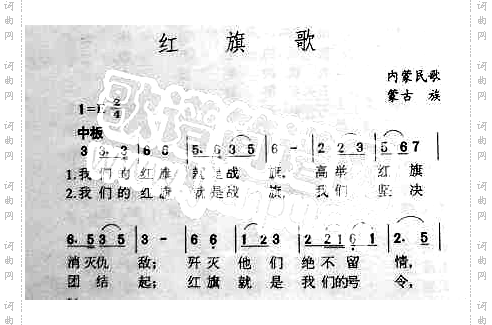 红 旗 歌
内蒙民歌
蒙古 族
1=E 2/4
中板
3 3. 3 | 6 6 | 5. 6 3 5 | 6 - | 2 2 3 | 5 6 7
1.我们的红旗 就是战 旗, 高举 红旗
2.我们的红旗 就是战 旗, 我们 坚决
6. 5 3 5 | 3 - | 6 6 | 1 2 3 | 2 2 1 6 1 | 2. 5
消灭仇 敌; 歼灭 他们 绝不留 情,
团结 起; 红旗 就是 我们的号 令,
词曲网